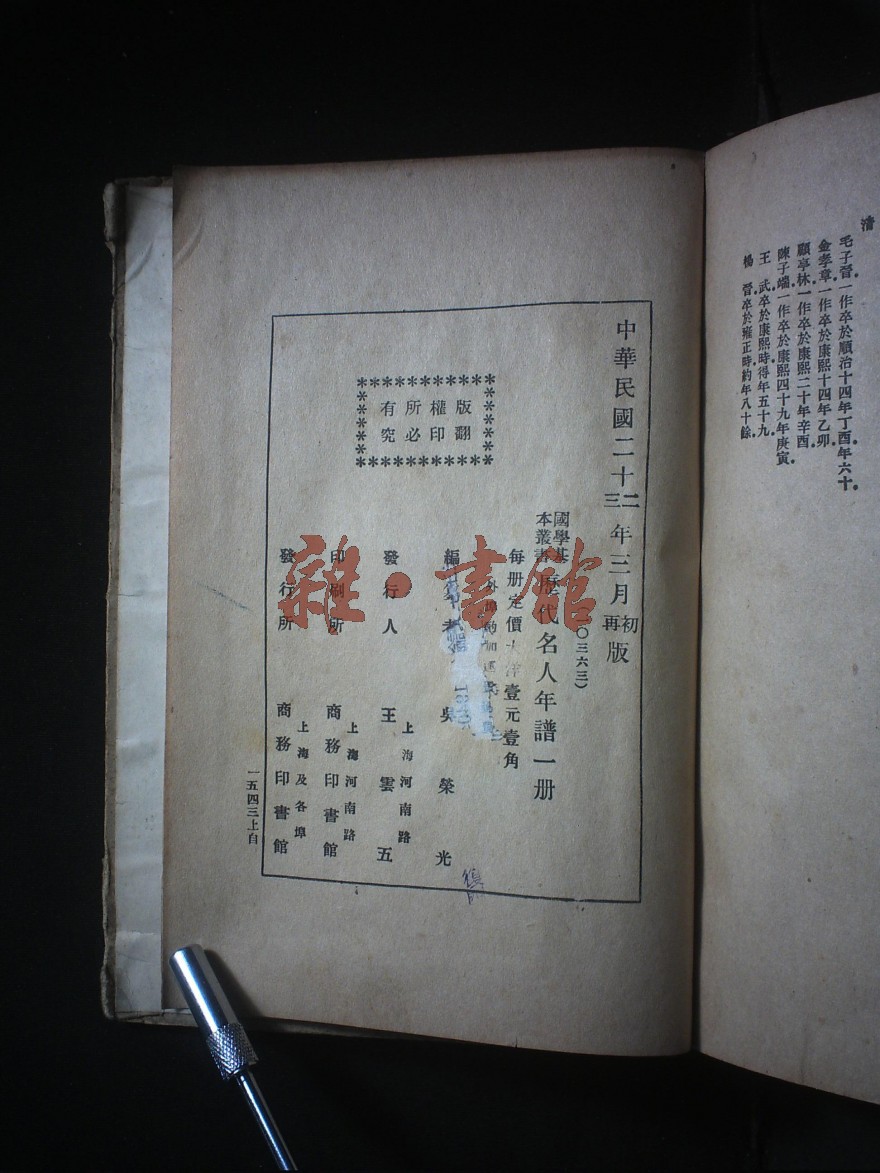 清
毛子晉一作卒於順治十四年丁酉年六十．
金孝章一作卒於康熙十四年乙卯
顧亭林一作卒於康熙二十年辛酉
陳子端一作卒於康熙四十九年庚寅．
王　武卒於康熙時得年五十九．
楊　晉卒於雍正時約年八十餘．
中華民國二十二年三月初版
三　再
(一〇三六三)
國學基本叢書 歷代名人年譜一册
每册定價大洋壹元壹角
外埠酌加運費匯費
版權所有
翻印必究
編纂者　吳榮光
發行人　王雲五
上海河南路
印刷所　商務印書館
上海河南路
發行所　商務印書館
上海及各埠
一五四三上自
雜·書館